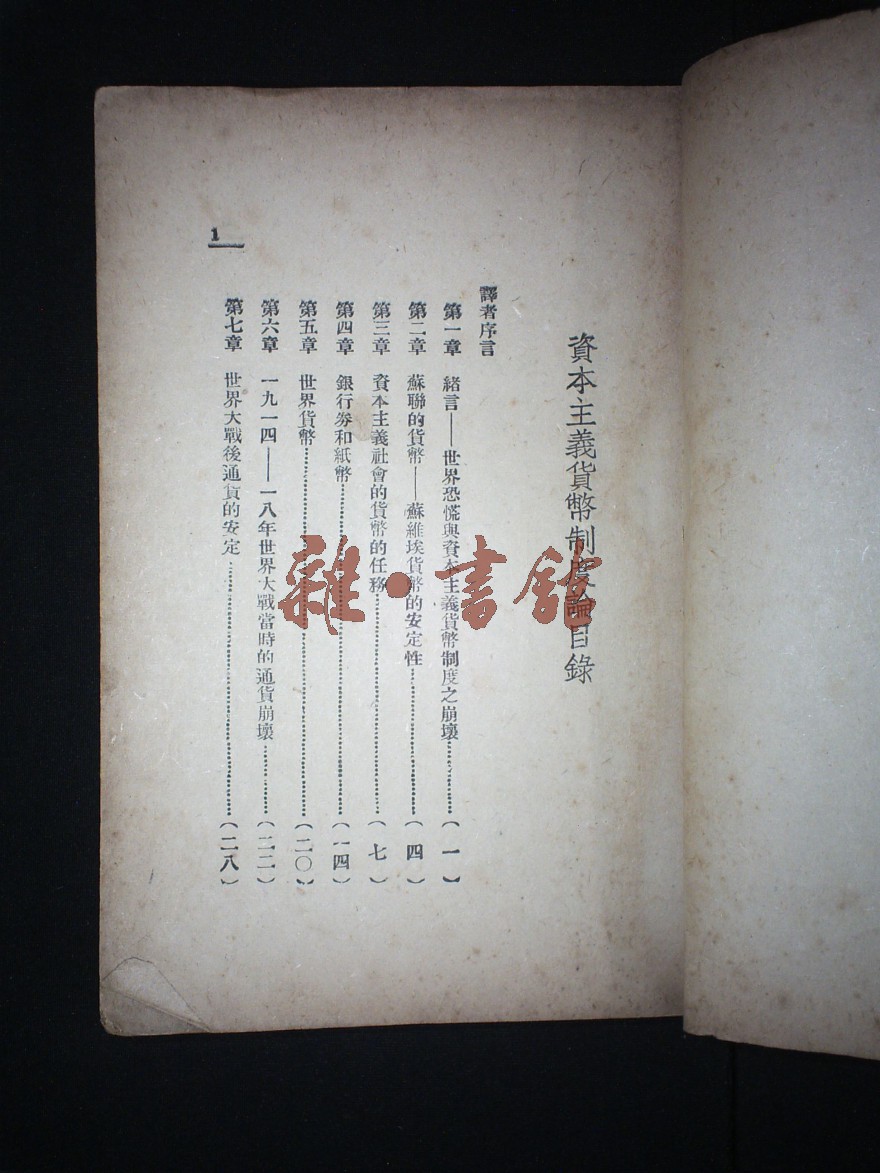 資本主義貨幣制度論目錄
譯者序言
第一章 緒言——世界恐慌與資本主義貨幣制度之崩壞……………(一)
第二章 蘇聯的貨幣——蘇維埃貨幣的安定性……………(四)
第三章 資本主義社會的貨幣的任務……………(七)
第四章 銀行券和紙幣……………(一四)
第五章 世界貨幣……………(二〇)
第六章 一九一四——一八年世界大戰當時的通貨崩壞……………(二二)
第七章 世界大戰後通貨的安定……………(二八)
1
雜·書館